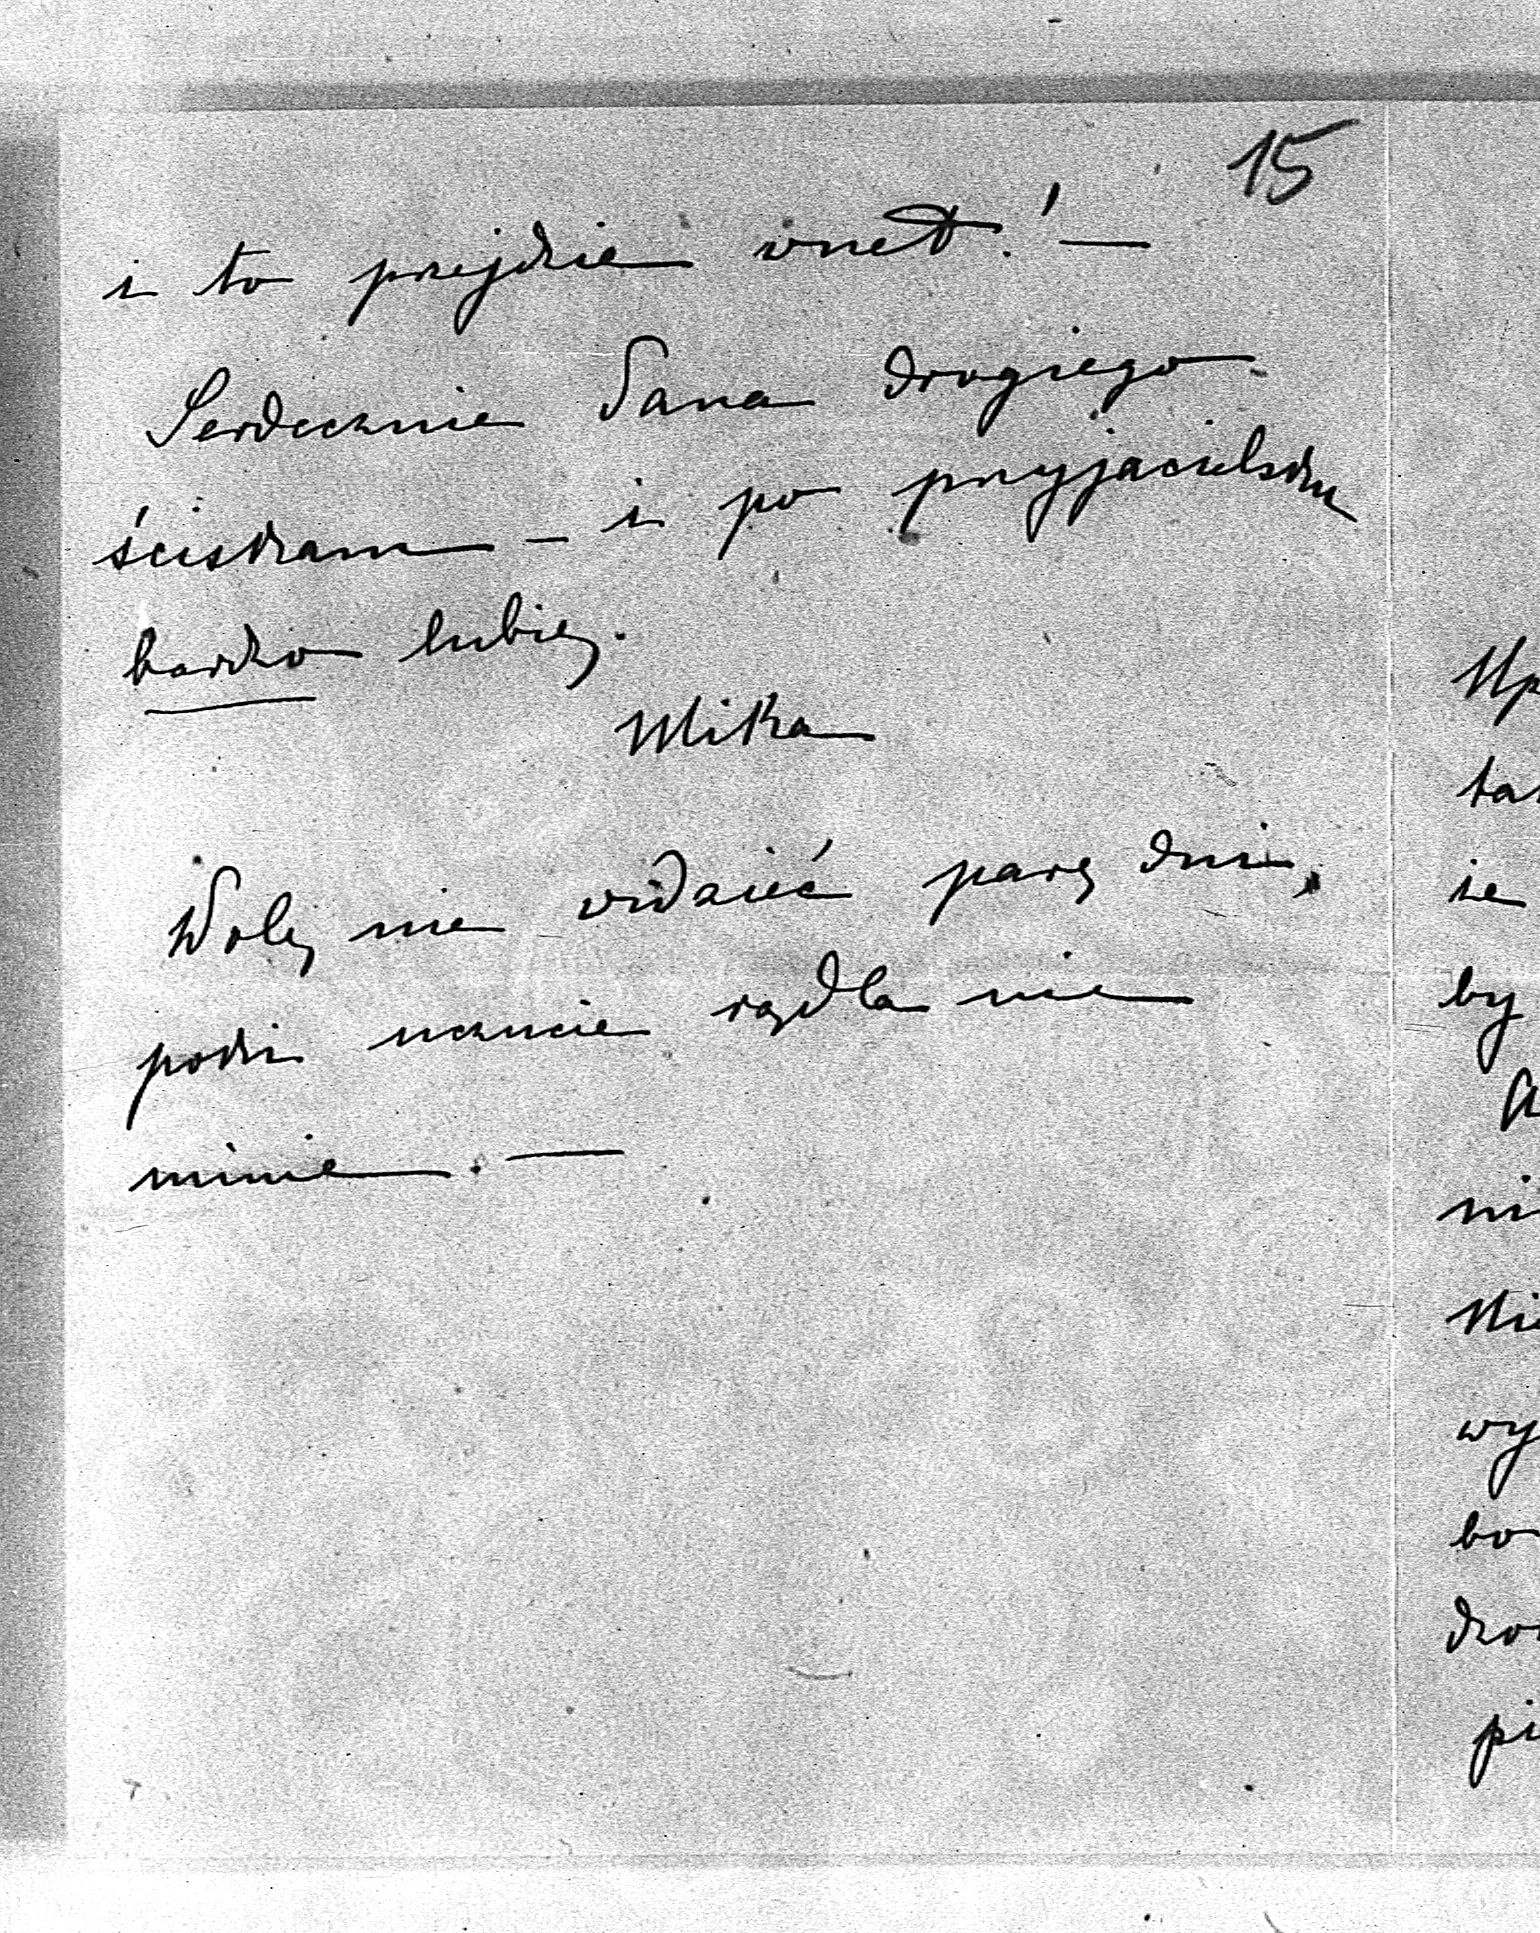 15
i to przejdzie wnet! —
Serdecznie Pana drogiego
ściskam – i po przyjacielsku
bardzo lubię.
Mika
Wolę nie widzieć parę dni,
póki uczucie rądla nie
minie. —
by
wy
bo